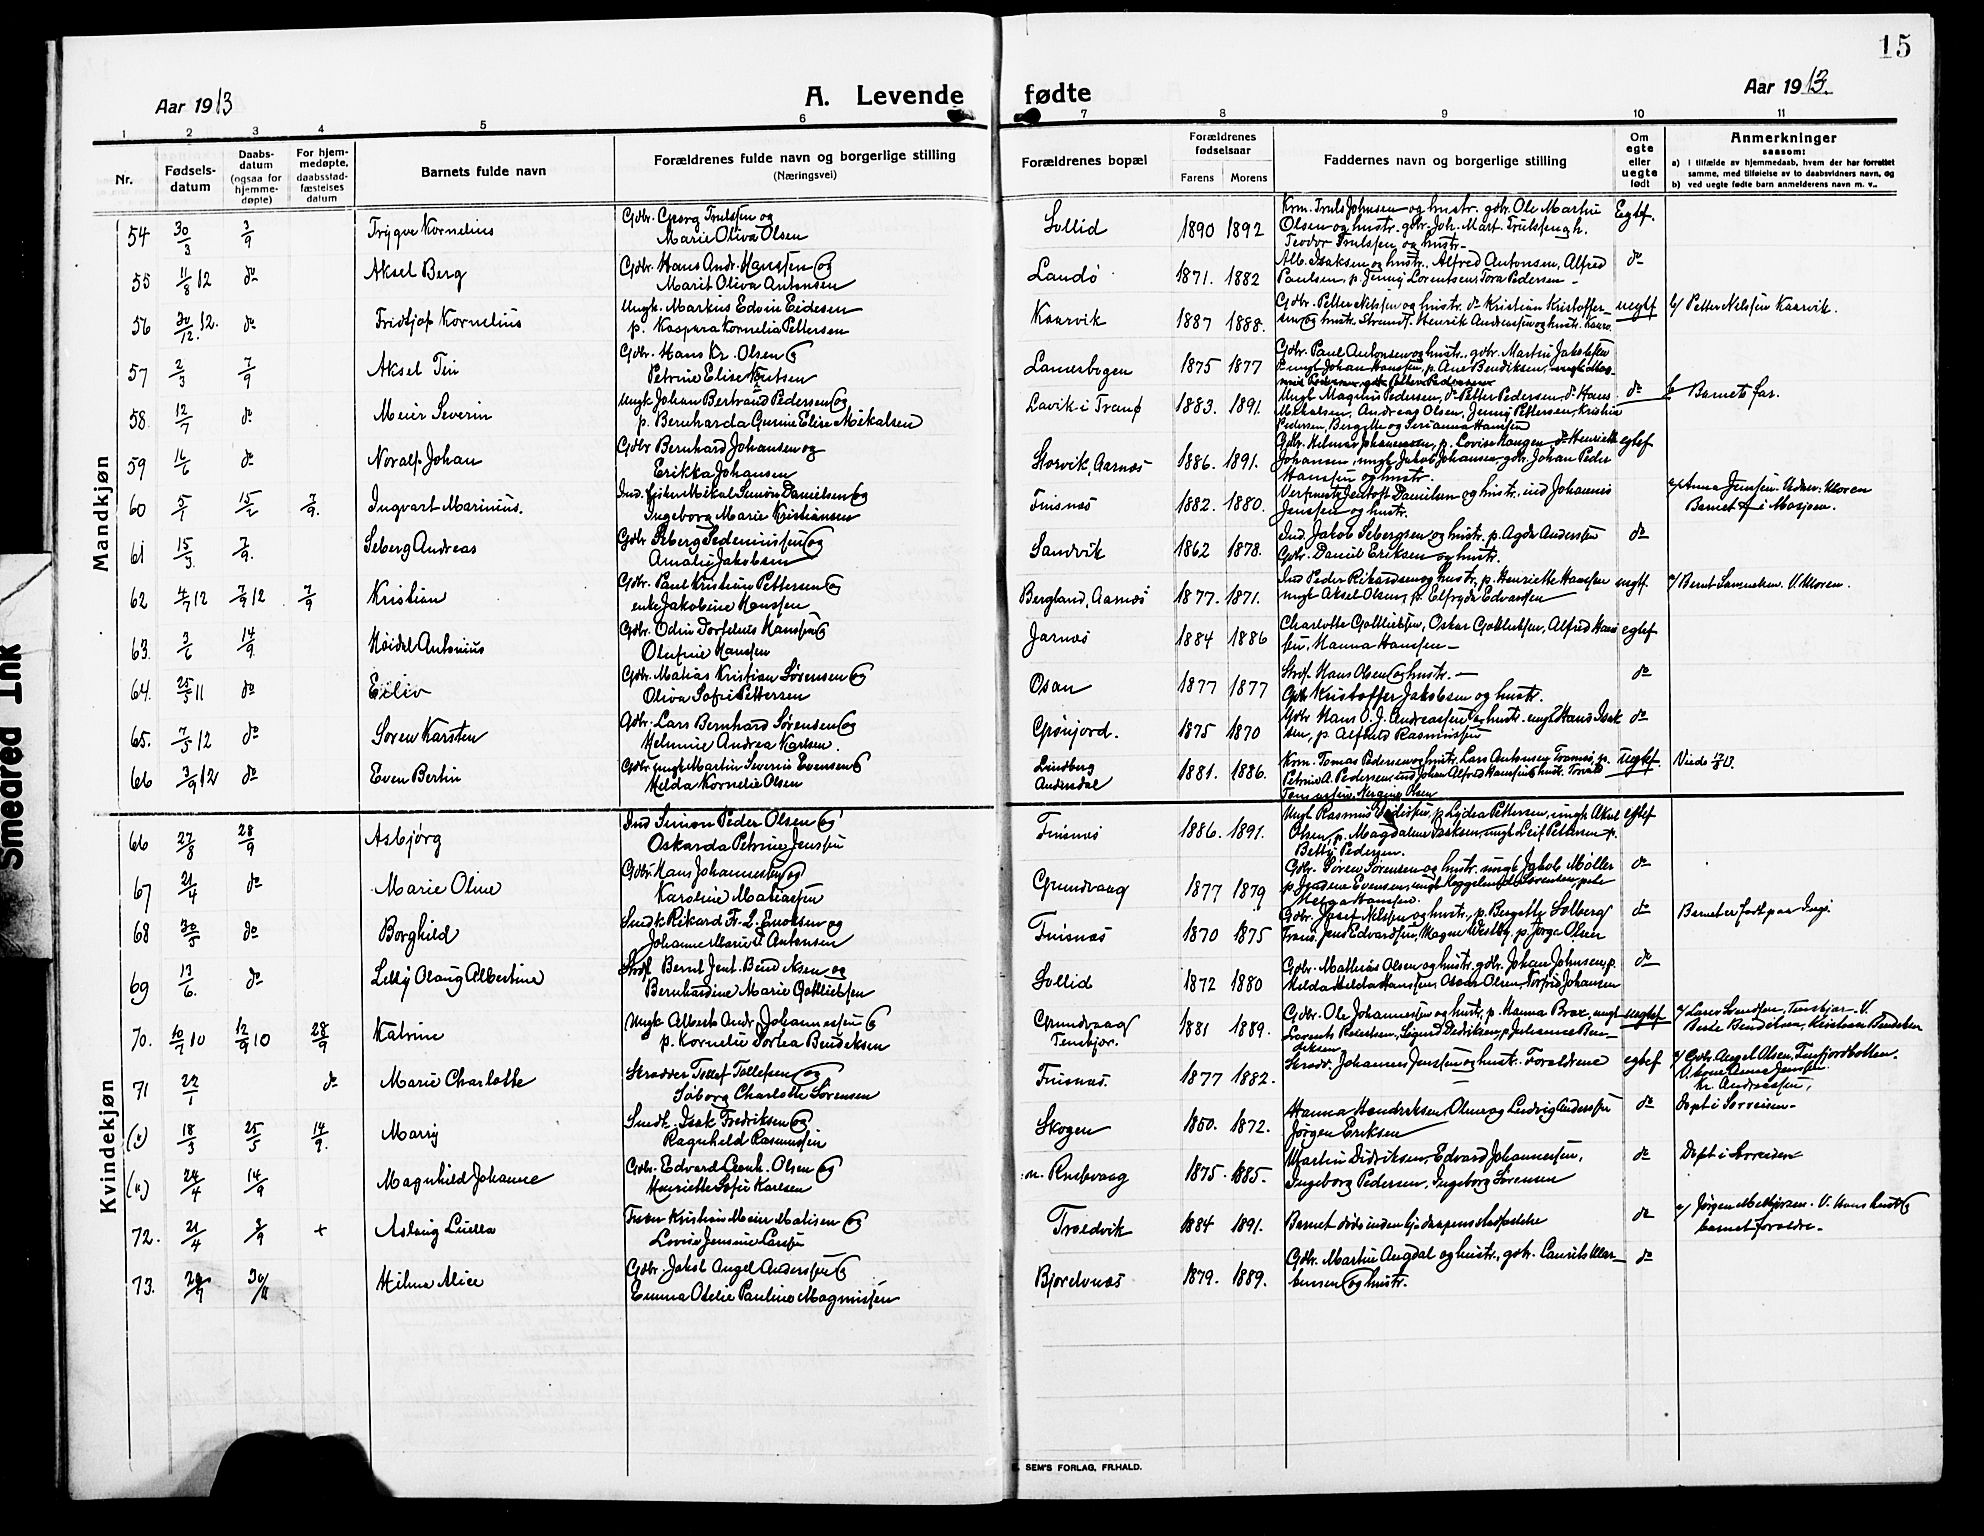 15
Aar 1913
A. Levende fødte
Aar 1913.
1 2 3 4 5 6 7 8 9 10 11
Nr.
Fødsels-
datum
Daabs-
datum
(ogsaa for
hjemme-
døpte)
For hjem-
medøpte,
daabsstad-
fæstelses
datum
Barnets fulde navn
Forældrenes fulde navn og borgerlige stilling
(Næringsvei)
Forældrenes bopæl
Forældrenes
fødselsaar
Farens Morens
Faddernes navn og borgerlige stilling
Om
egte
eller
uegte
født
Anmerkninger
saasom:
a) i tilfælde av hjemmedaab, hvem der har forrettet
samme, med tilføielse av to daabsvidners navn, og
b) ved uegte fødte barn anmelderens navn m. v..
Mandkjøn
54 30/3 3/9 Trygve Kornelius
Gdbr. Georg Trulssen og
Marie Oliva Olsen
Sollid 1890 1892
Krm. Truls Johnsen og hustr. gdbr. Ole Martin
Olsen og hustr. gdbr. Joh. Mart. Trulssen
Teodor Trulssen og hustr.
Egtef.
55 11/8 12 do Aksel Berg
Gdbr. Hans Andr. Hanssen og
Marit Oliva Antonsen
Landø 1871. 1882
Alb. Isaksen og hustr. Alfred Antonsen, Alfred
Paulsen, p. Jenny Lorentsen, Tora Pedersen
do
56 30/12 12. do Fridtjop Kornelius
Ungk. Markus Edvin Eidesen
p. Kaspara Kornelia Pettersen
Kaarvik 1887 1888.
Gdbr. Petter Nilssen og hustr. do Kristian Kristoffer-
sen og hustr. Strandf. Henrik Andreassen og hustr.
uegtf
b/ Petter Nilssen Kaarvik.
57 2/3 7/9 Aksel
Gdbr. Hans Kr. Olsen og
Petrine Elise Knutsen
1875 1877
Gdbr. Paul Antonsen og hustr., gdbr. Martin Jakobsen
ungk Johan Hanssen, p. Ane Bendiksen,
58 12/7 do Meier Severin
Ungk Johan Bertrand Pedersen og
p. Bernharda Gurine Elise Mikalsen
Lavik i Tranø 1883. 1891.
Ungk. Magnus Pedersen, do Petter Pedersen, do Hans
Mikalsen, Andreas Olsen, Jenny Pettersen, Kristine
Pedersen, Bergitte og Serianna Hanssen
do
b Barnets far.
59 do Noralf Johan
Gdbr Bernhard Johansen og
Erikka Johansen
Storvik, Aarnes 1886. 1891.
p. Lovise Haugen do Henriette
Johansen, ungk Jakob Johansen gdbr. Johan Peder
Hanssen og hustr.
egtef
60 5/1 15/2 7/9. Ingvart Marinius.
Ind. fisker Mikal Simon Danielsen og
Ingeborg Marie Kristiansen
Finsnes 1882. 1880.
Jentoft Danielsen og hustr. ind Johannes
Jenssen og hustr.
a/ Anna Jenssen.
Barnet f. i Mosjøen.
61 15/3 7/9. Seberg Andreas
Gdbr Seberg Pedeminssen og
Amalie Jakobsen
Sandvik 1862 1878.
Ind. Jakob Sebergsen og hustr. p. Agda Anderssen
Gdbr. Daniel Eriksen og hustr.
do
62 4/7 12 7/9 12 7/9 Kristian
Gdbr. Paul Kristian Pettersen og
enke Jakobine Hanssen
Bergland, Aarnes 1877. 1871.
Ind Peder Rikardsen og hustr, p. Henriette Hanssen
ungk Aksel Olsen, p. Elfryda Edvardsen
uegtf.
a/ Bernt Samuelsen.
63. 3/6 14/9. Høidal Antonius
Gdbr. Odin Dorfenus Hanssen og
Olufine Hanssen
Jarnes 1884 1886
Charlotte Gottliebsen, Oskar Gottliebsen, Alfred Hans
sen, Hanna Hanssen
egtef
64. 25/5 11 do Eiliv
Gdbr. Matias Kristian Sørensen og
Oliva Sofie Pettersen
Osan 1877 1877
Strdf. Hans Olsen og hustr.
Gdbr Kristoffer Jakobsen og hustr.
do
65. 7/5 12 do Søren Karsten
Gdbr. Lars Bernhard Sørensen og
Helmine Andrea Karlsen.
Grønjord. 1875 1870
Gdbr Hans O. J. Andreassen og hustr. ungk Hans Isak
sen, p. Alfhild Rasmussen
do
66 3/9 12 do Even Bertin
Gdbr. ungk Martin Severin Evensen og
Hilda Kornelie Olsen
Lindberg
Andersdal
1881. 1886.
Krm. Tomas Pedersen og hustr, Lars Antonsen Tromsø, p.
Petrine A. Pedersen, ind Johan Alfred Hanssen og hustr.
Uegtef.
Kvindekjøn
66 27/8 28/9 Asbjørg
Ind Simon Peder Olsen og
Oskarda Petrine Jenssen
Finsnes 1886. 1891.
p. Lydea Pettersen, ungk Aksel
Olsen, p. Magdalene Isaksen, ungk Leif Pettersen p.
Betty Pedersen.
egtef
67 21/4 do Marie Oline
Gdbr. Hans Johannessen og
Karoline Matiassen
Grundvaag 1877 1879
Gdbr. Søren Sørensen og hustr. ungk Jakob Møller
do
68 30/5 do Borghild
Smed k. Rikard Fr. L. Enoksen og
Johanne Marie Antonsen
Finsnes 1870 1875
Gdbr. Josef Nilssen og hustr., p. Bergitte Solberg
Jens Edvardsen, Magne Westby, p. Jørga Olsen
do
Barnet er født paa
69 13/6. do Lilly Olaug Albertine
Strdf. Bernt Jent. Bendiksen og
Bernhardine Marie Gottliebsen
Sollid 1872 1880
Gdbr. Mathias Olsen og hustr. gdbr. Johan Johnsen, p.
Hilda Helda Hanssen, Oskar Olsen, Torfrid Johansen
do
70. 10/7 10 12/9 10 28/9 Katrine
Ungk Alberts Andr. Johannessen og
p. Kornelie Dorthea Bendiksen
Grundvaag
Tenskjær.
1881 1889.
Gdbr. Ole Johannessen og hustr, p. Hanna Brox, ungk
Sigurd Didriksen, p. Johanna Ben-
diksen
uegtef
a/ Lars Svendsen, Tenskjær. V.
Berte Bendiksen, Kristine Bendiksen
71 22/1 do Marie Charlotte
Skrædder Tollef Tollefsen og
Søborg Charlotte Sørensen
Finsnes. 1877 1882.
Skrædr. Johannes Jenssen og hustr. Forældrene
egtef
a/ Gdbr. Angel Olsen, Finfjordbotten.
V. kone Anna Jenssen
Kr. Andreassen,
18/3 25/5 14/9. Marry
Smedk. Isak Fredriksen og
Ragnhild Rasmussen
Skogen 1850. 1872.
Hanna Hendriksen, Oline og Ludvig Anderssen
Jørgen Eriksen
do
Døpt i Sørreisen
24/4 14/9 Magnhild Johanne
Gdbr. Edvard Leonh. Olsen og
Henriette Sofie Karlsen
1875. 1885.
Martin Didriksen, Edvard Johannessen,
Ingeborg Pedersen, Ingeborg Sørensen
do
Døpt i Sørreisen
72. 21/4 3/9 + Aslaug Luella
Kristian Meier Matisen og
Lovise Jensine Larsen
Troldvik 1884 1891.
Barnet døde inden hjdaapens stadfæstelse
do
a/ Jørgen Melkjorsen. V. Hans hustr. og
barnet foreldre.
73. 29/9 30/11 Hilma Alice
Gdbr. Jakob Angel Anderssen og
Emma Otelie Pauline Magnussen
Bjorelvnes 1879. 1889.
Gdbr. Martin Angdal og hustr., gdbr. Laurits Mar-
tinsen og hustr.
do
SEM'S FORLAG, FR.HALD.
Smeared Ink